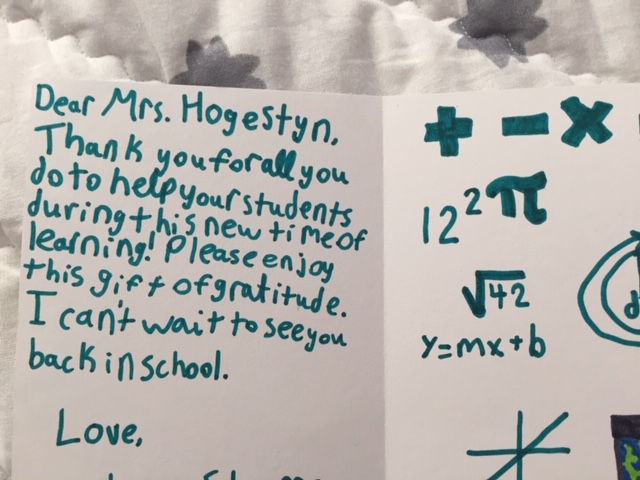 Dear Mrs. Hogestyn,
Thank you for all you
do to help your students
during this new time of
learning! Please enjoy
this gift of gratitude.
I can't wait to see you
back in school.
Love,
+ - ×
12² π
√42
y=mx+b
d